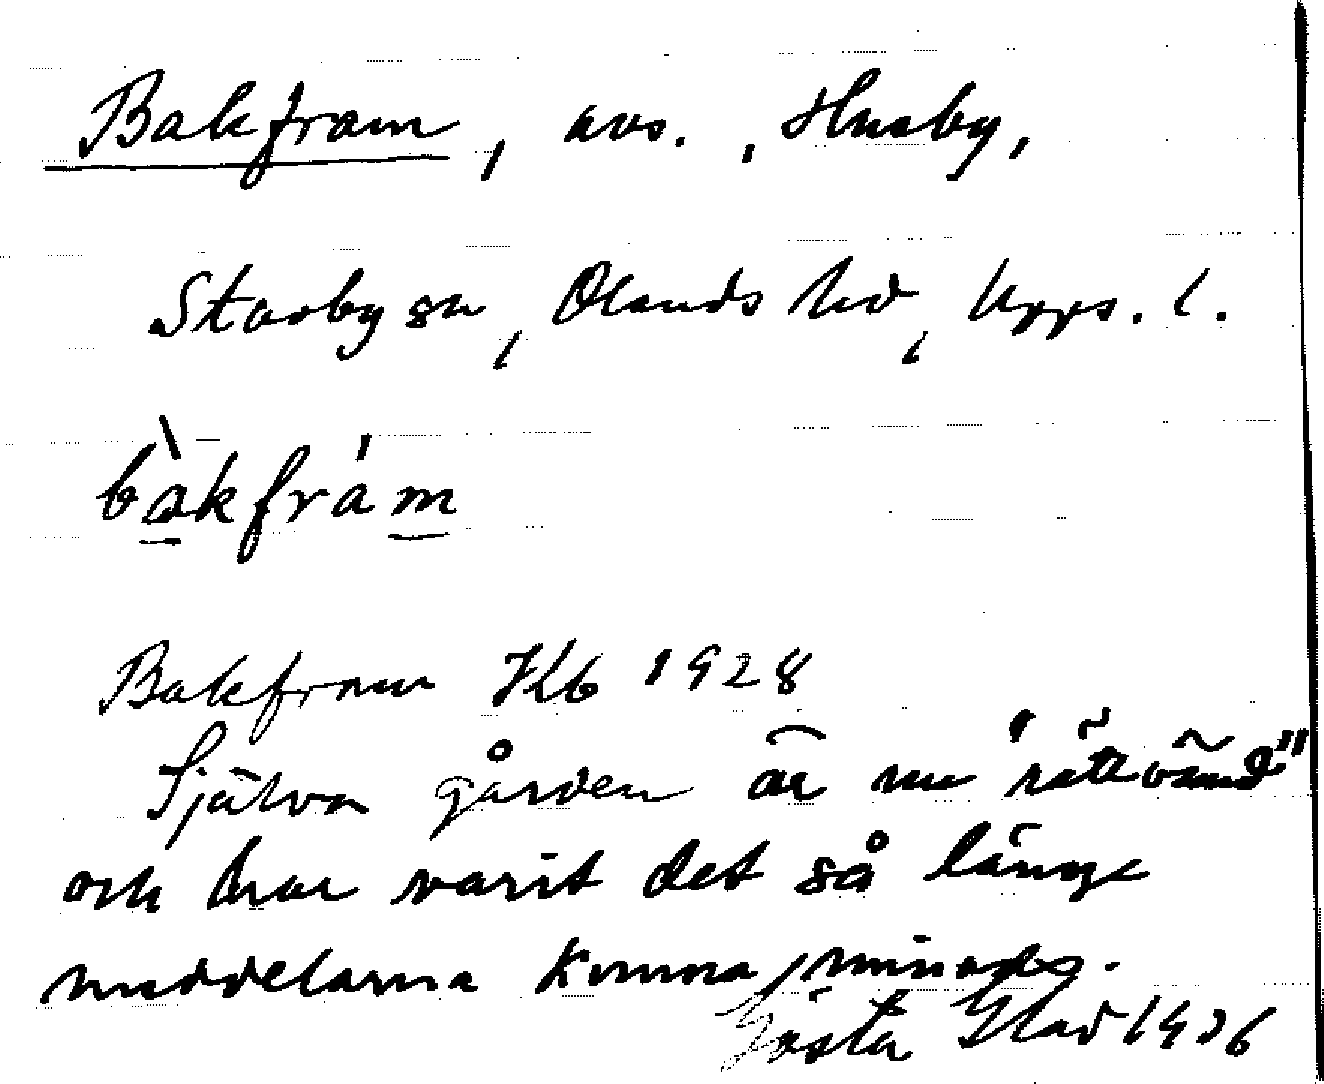 Bakfram, avs., Husby,
Stavby sn, Olands hd, Upps. l.
bàkfrám
Bakfram Kb 1928
Själva gården är nu "rättvänd"
och har varit det så länge
meddelarna kunna minnas.
Gösta Blad 1936